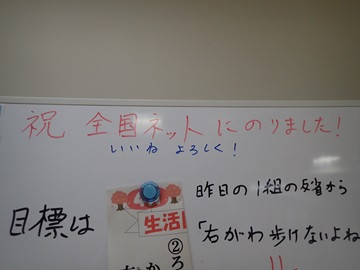 祝 全国ネットにのりました!
いいね よろしく!
昨日の1組の反省から
目標は
「右がわ歩けないよね
生活
②ろ